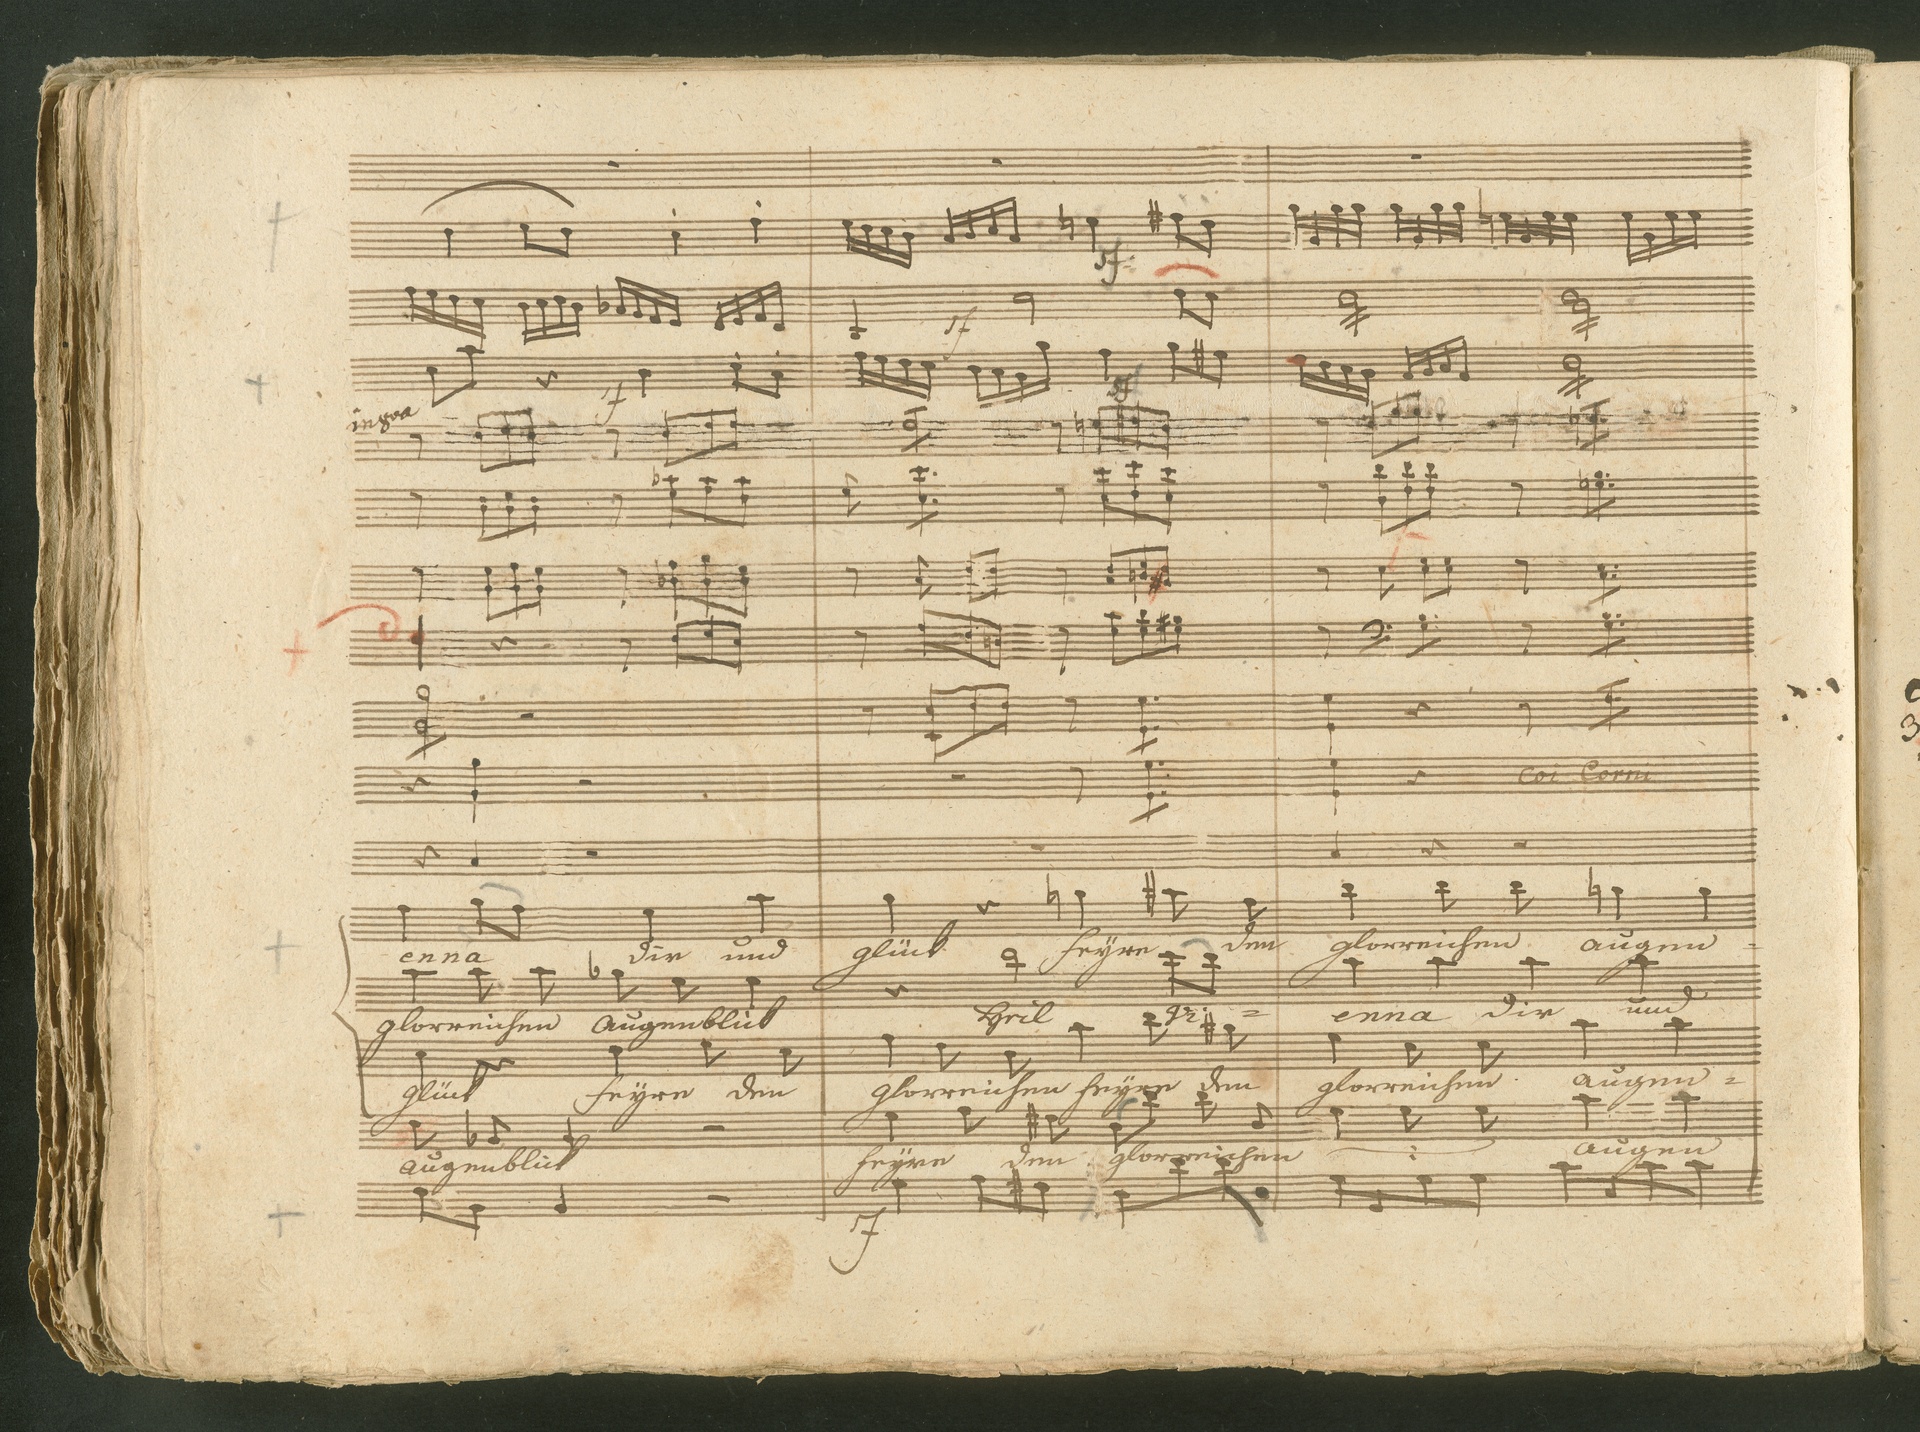 sf
sf
sf
sf
in 8va
coi Corni
enna dir und glück feyre den glorreichen augen -
glorreichen Augenblick Heil Vi = enna dir und
glück feyre den glorreichen feyre den glorreichen augen =
augenblick feyre den glorreichen augen
sf
3